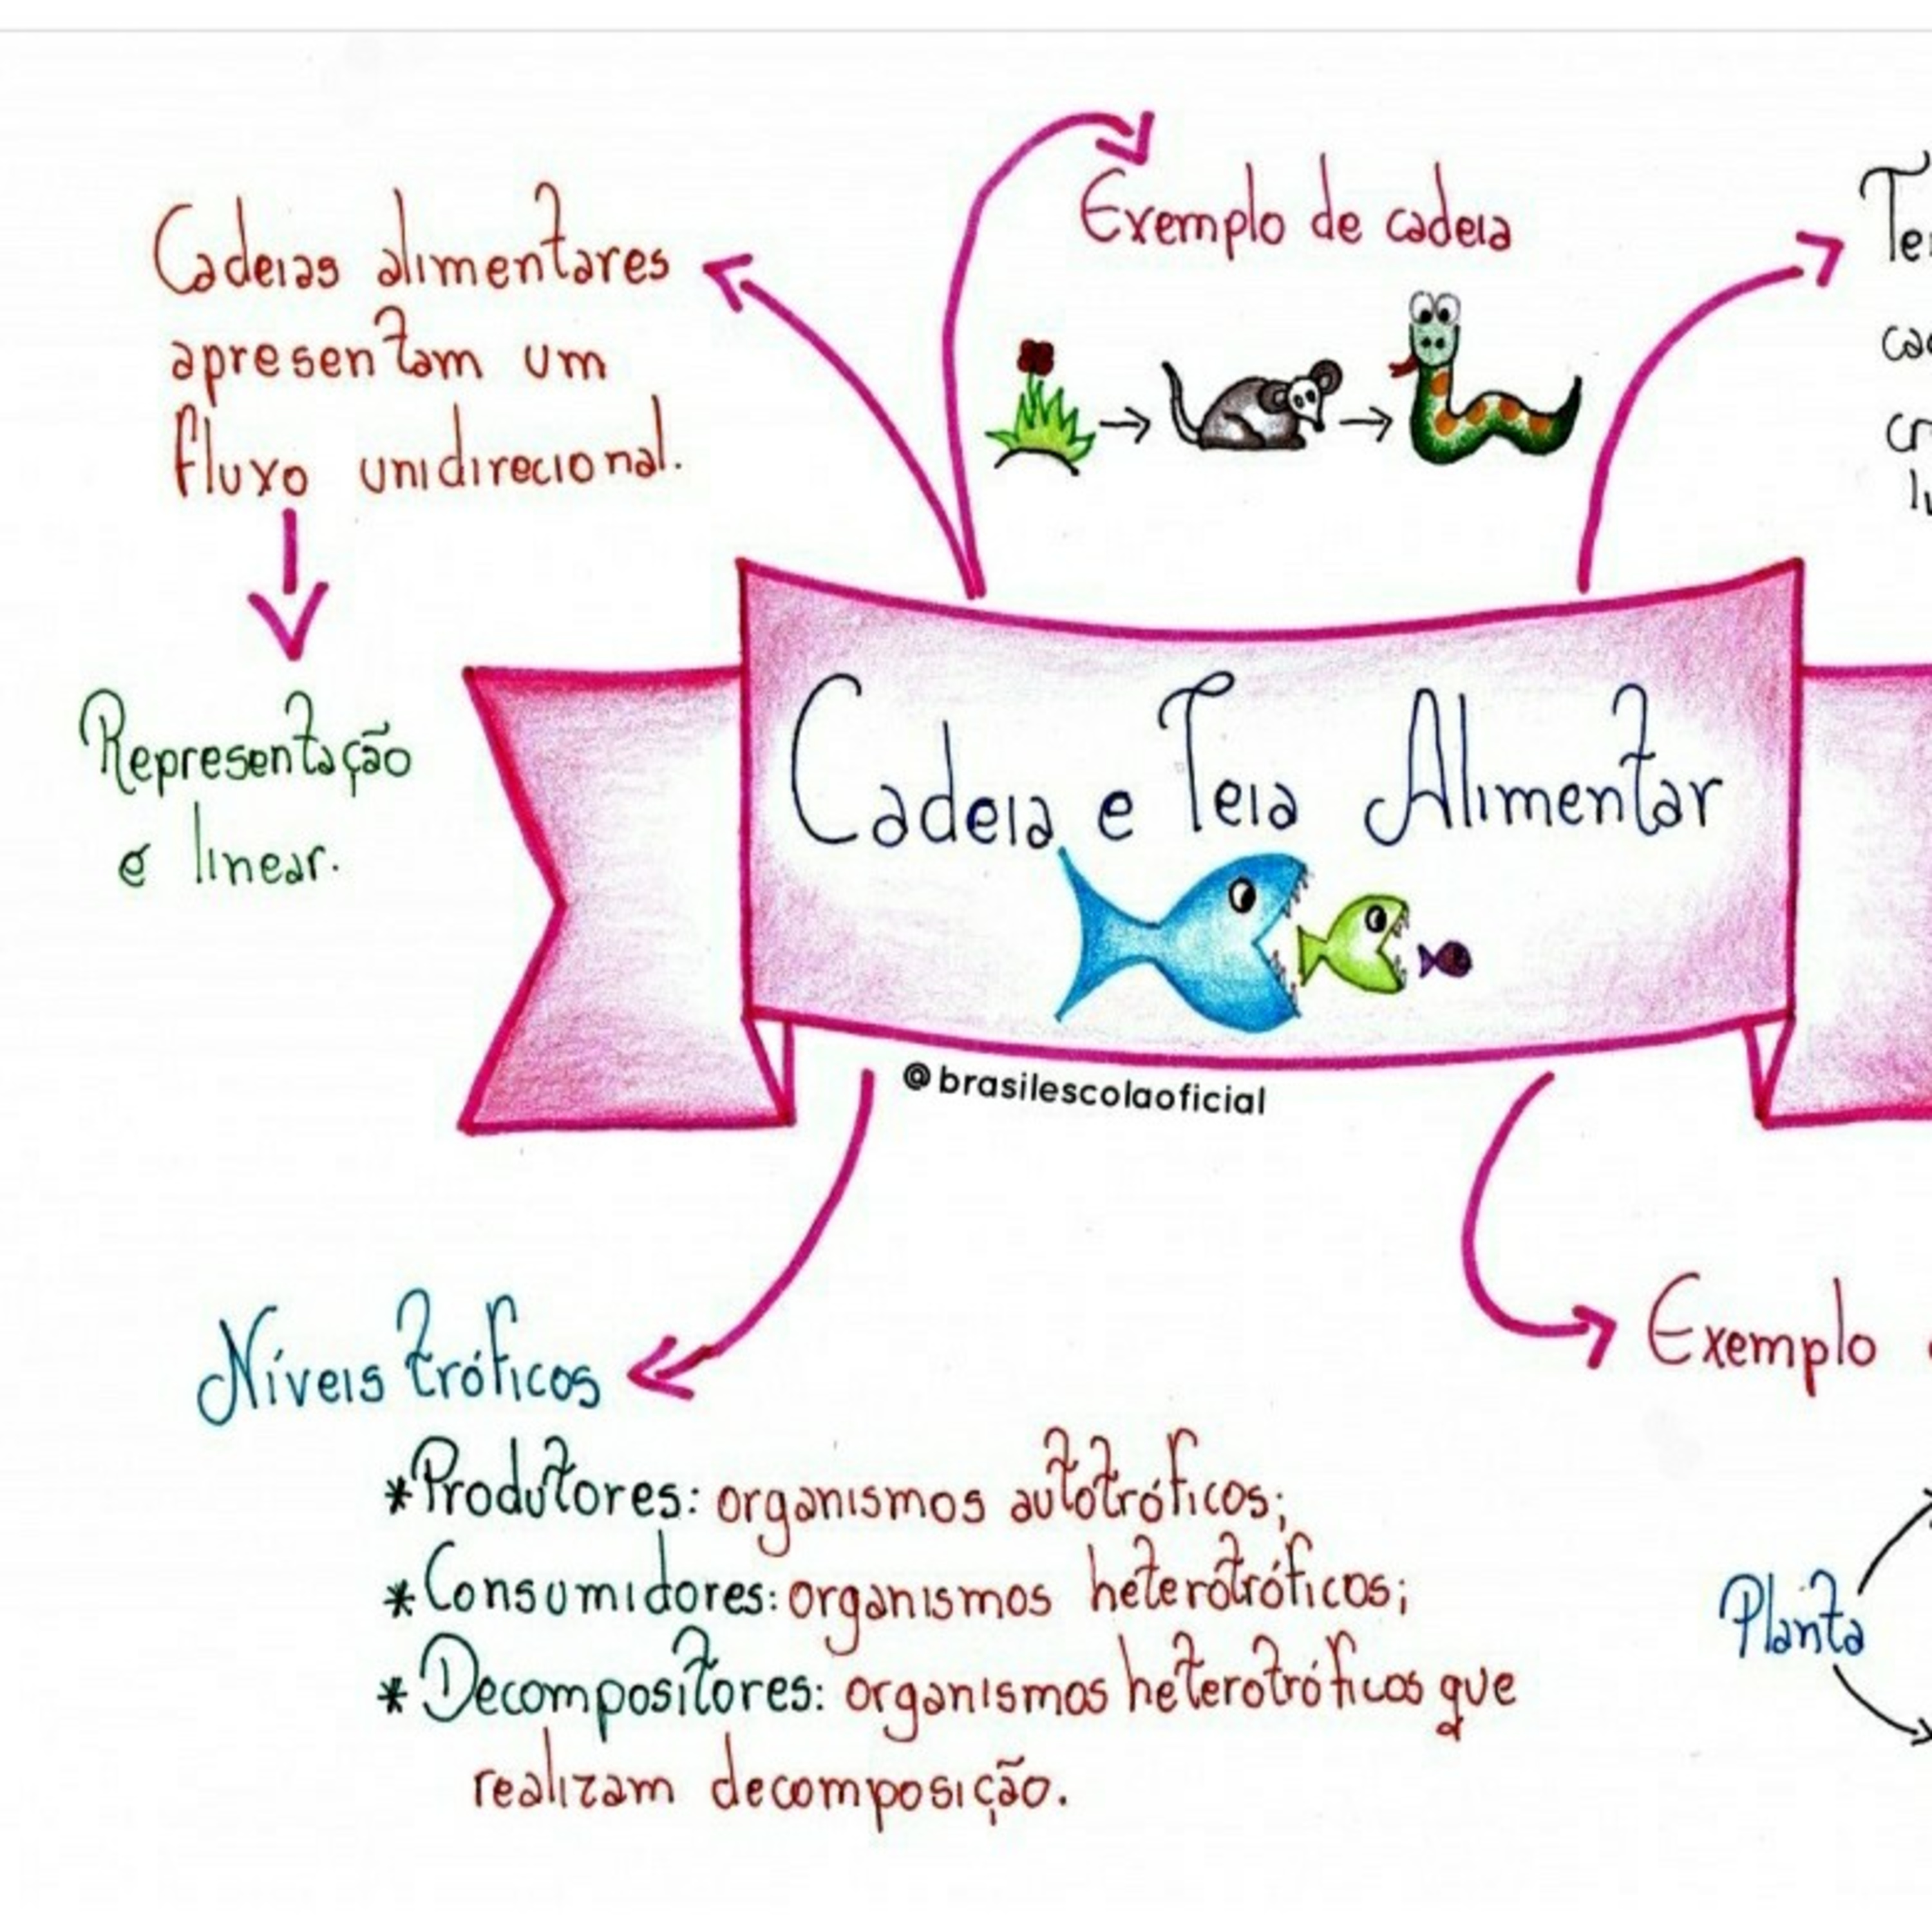 Cadeias alimentares
apresentam um
fluxo unidirecional.
Representação
é linear.
Exemplo de cadeia
Cadeia e Teia Alimentar
@brasilescolaoficial
Níveis tróficos
*Produtores: organismos autotróficos;
*Consumidores: organismos heterotróficos;
*Decompositores: organismos heterotróficos que
realizam decomposição.
Exemplo
Planta